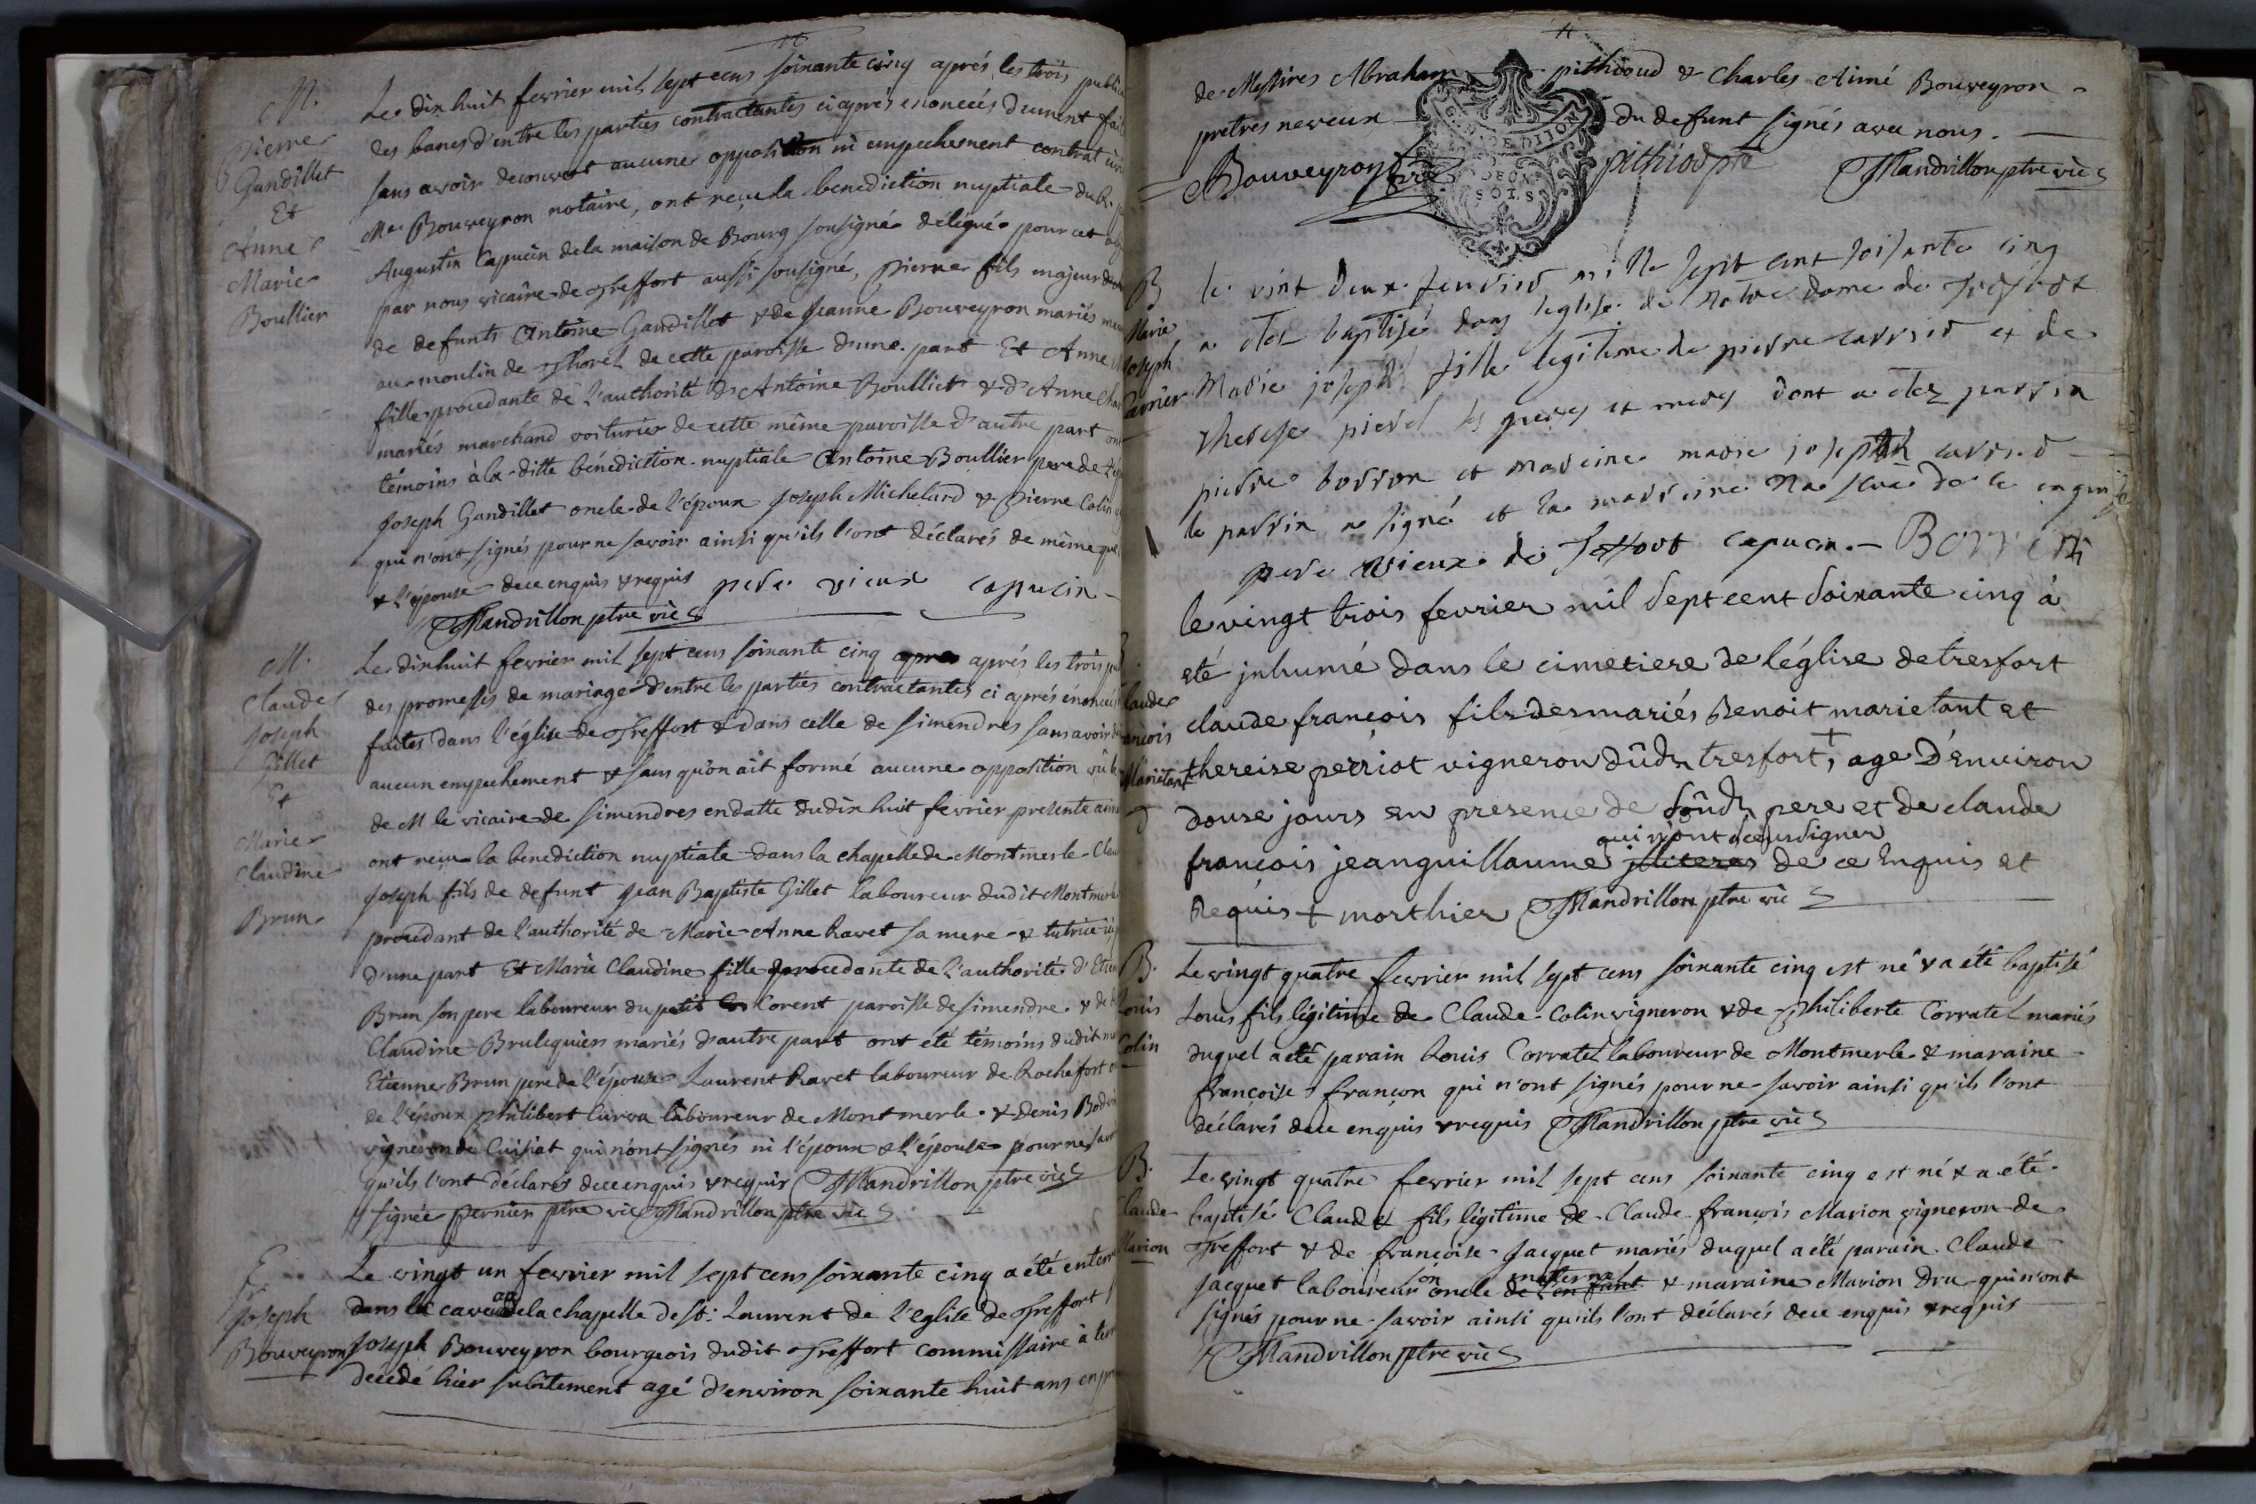 M.
Pierre
Gandillet
Et
Anne
Marie
Boullier
Le dix huit fevrier mil sept cens soixante cinq aprés les trois public
des bancs d'entre les parties contractantes ci aprés enoncées duement fait
sans avoir decouvert aucune opposition ni empechement contrat
Me Bouveyron notaire, ont reçu la benediction nuptiale du R.
Augustin Capucin de la maison de Bourg sousigné délégué pour cet
par nous vicaire de Treffort aussi sousigné, Pierre fils majeur
de defunts Antoine Gandillet & de Jeanne Bouveyron mariés
au moulin de Thorel de cette paroisse d'une part Et Anne
fille procedante de l'authorité d'Antoine Boullier & d'Anne
mariés marchand voiturier de cette même paroisse d'autre part ont
témoins à la ditte bénédiction nuptiale Antoine Boullier pere de
Joseph Gandillet oncle de l'époux Joseph Michelard & Pierre Colin
qui n'ont signés pour ne savoir ainsi qu'ils l'ont déclarés de même que
& l'épouse de ce enquis & requis pere vieux capucin
Mandrillon ptre vic
M.
Claude
Joseph
Gillet
Et
Marie
Claudine
Brun
Le dixhuit fevrier mil sept cens soixante cinq apres aprés les trois pu
des promesses de mariage d'entre les parties contractantes ci aprés énoncées
faites dans l'église de Treffort & dans celle de Simendres sans avoir de
aucun empechement & sans qu'on ait formé aucune opposition vû le
de M le vicaire de Simendres en datte du dix huit fevrier presente
ont reçu la benediction nuptiale dans la chapelle de Montmerle Clau
Joseph fils de defunt Jean Baptiste Gillet laboureur dudit Montmerle
procedant de l'authorité de Marie Anne Ravet sa mere & tutrice
d'une part Et Marie Claudine fille procedante de l'authorité d'Etien
Brun son pere laboureur du petit Corent paroisse de Simendre & de
Claudine Brulequien mariés d'autre part ont été témoins dudit
Etienne Brun pere de l'épouse Laurent Ravet laboureur de Rochefort
de l'époux Philibert Curva laboureur de Montmerle & Denis
vigneron de Cuisiat qui n'ont signés ni l'époux & l'épouse pour ne
qu'ils l'ont déclarés de ce enquis & requis Mandrillon ptre vic
signée pernier ptre vic Mandrillon ptre vic
E.
Joseph
Bouveyron
Le vingt un fevrier mil sept cens soixante cinq a été enterré
dans le caveau de la chapelle de St. Laurent de l'eglise de Treffort
Joseph Bouveyron bourgeois dudit Treffort commissaire à ter
decedé hier subitement agé d'environ soixante huit ans en
de Messires Abraham pithioud & Charles Aimé Bouveyron
pretres neveux du defunt signés avec nous.
Bouveyron ptre pithiod ptre Mandrillon ptre vic
B
Marie
Joseph
Carrier
le vint deux fevrier mille sept cent soisante cinq
a etez baptisé dans leglise de notre dame de Trefort
Marie joseph fille legitime de pierre carrier et de
Therese pierel ses peres et meres dont a etez parrin
pierre borron et mareine marie joseph carrier
le parrin a signé et la marreine na sceu de ce enquis
pere vieux de Teffort capucin. Borron
le vingt trois fevrier mil Sept cent Soixante cinq à
eté jnhumé dans le cimetiere de léglise de tresfort
Claude
ançois
Marietant
claude françois fils des mariés Benoit marietant et
thereise perriot vigneron dûdt tresfort + age D'Environ
douse jours en presence de Sûdt pere et de claude
qui n'ont sceu signer
françois jeanguillaume jlliteres de ce Enquis et
Requis + morthier Mandrillon ptre vic
B.
Louis
Colin
Le vingt quatre fevrier mil sept cens soixante cinq est né & a été baptisé
Louis fils légitime de Claude Colin vigneron & de Philiberte Corratel mariés
duquel a été parain Louis Corratel laboureur de Montmerle & maraine
françoise françon qui n'ont signés pour ne savoir ainsi qu'ils l'ont
déclarés de ce enquis & requis Mandrillon ptre vic
B.
Claude
Marion
Le vingt quatre fevrier mil sept cens soixante cinq est né & a été
baptisé Claude fils légitime de Claude françois Marion vigneron de
Treffort & de françoise Jacquet mariés duquel a été parain Claude
Jacquet laboureur son oncle de l'enfant maternel & maraine Marion Dru qui n'ont
signés pour ne savoir ainsi qu'ils l'ont déclarés de ce enquis & requis
Mandrillon ptre vic